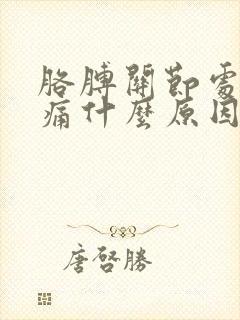 胳膊關節處
痛什麼原因
唐啓勝